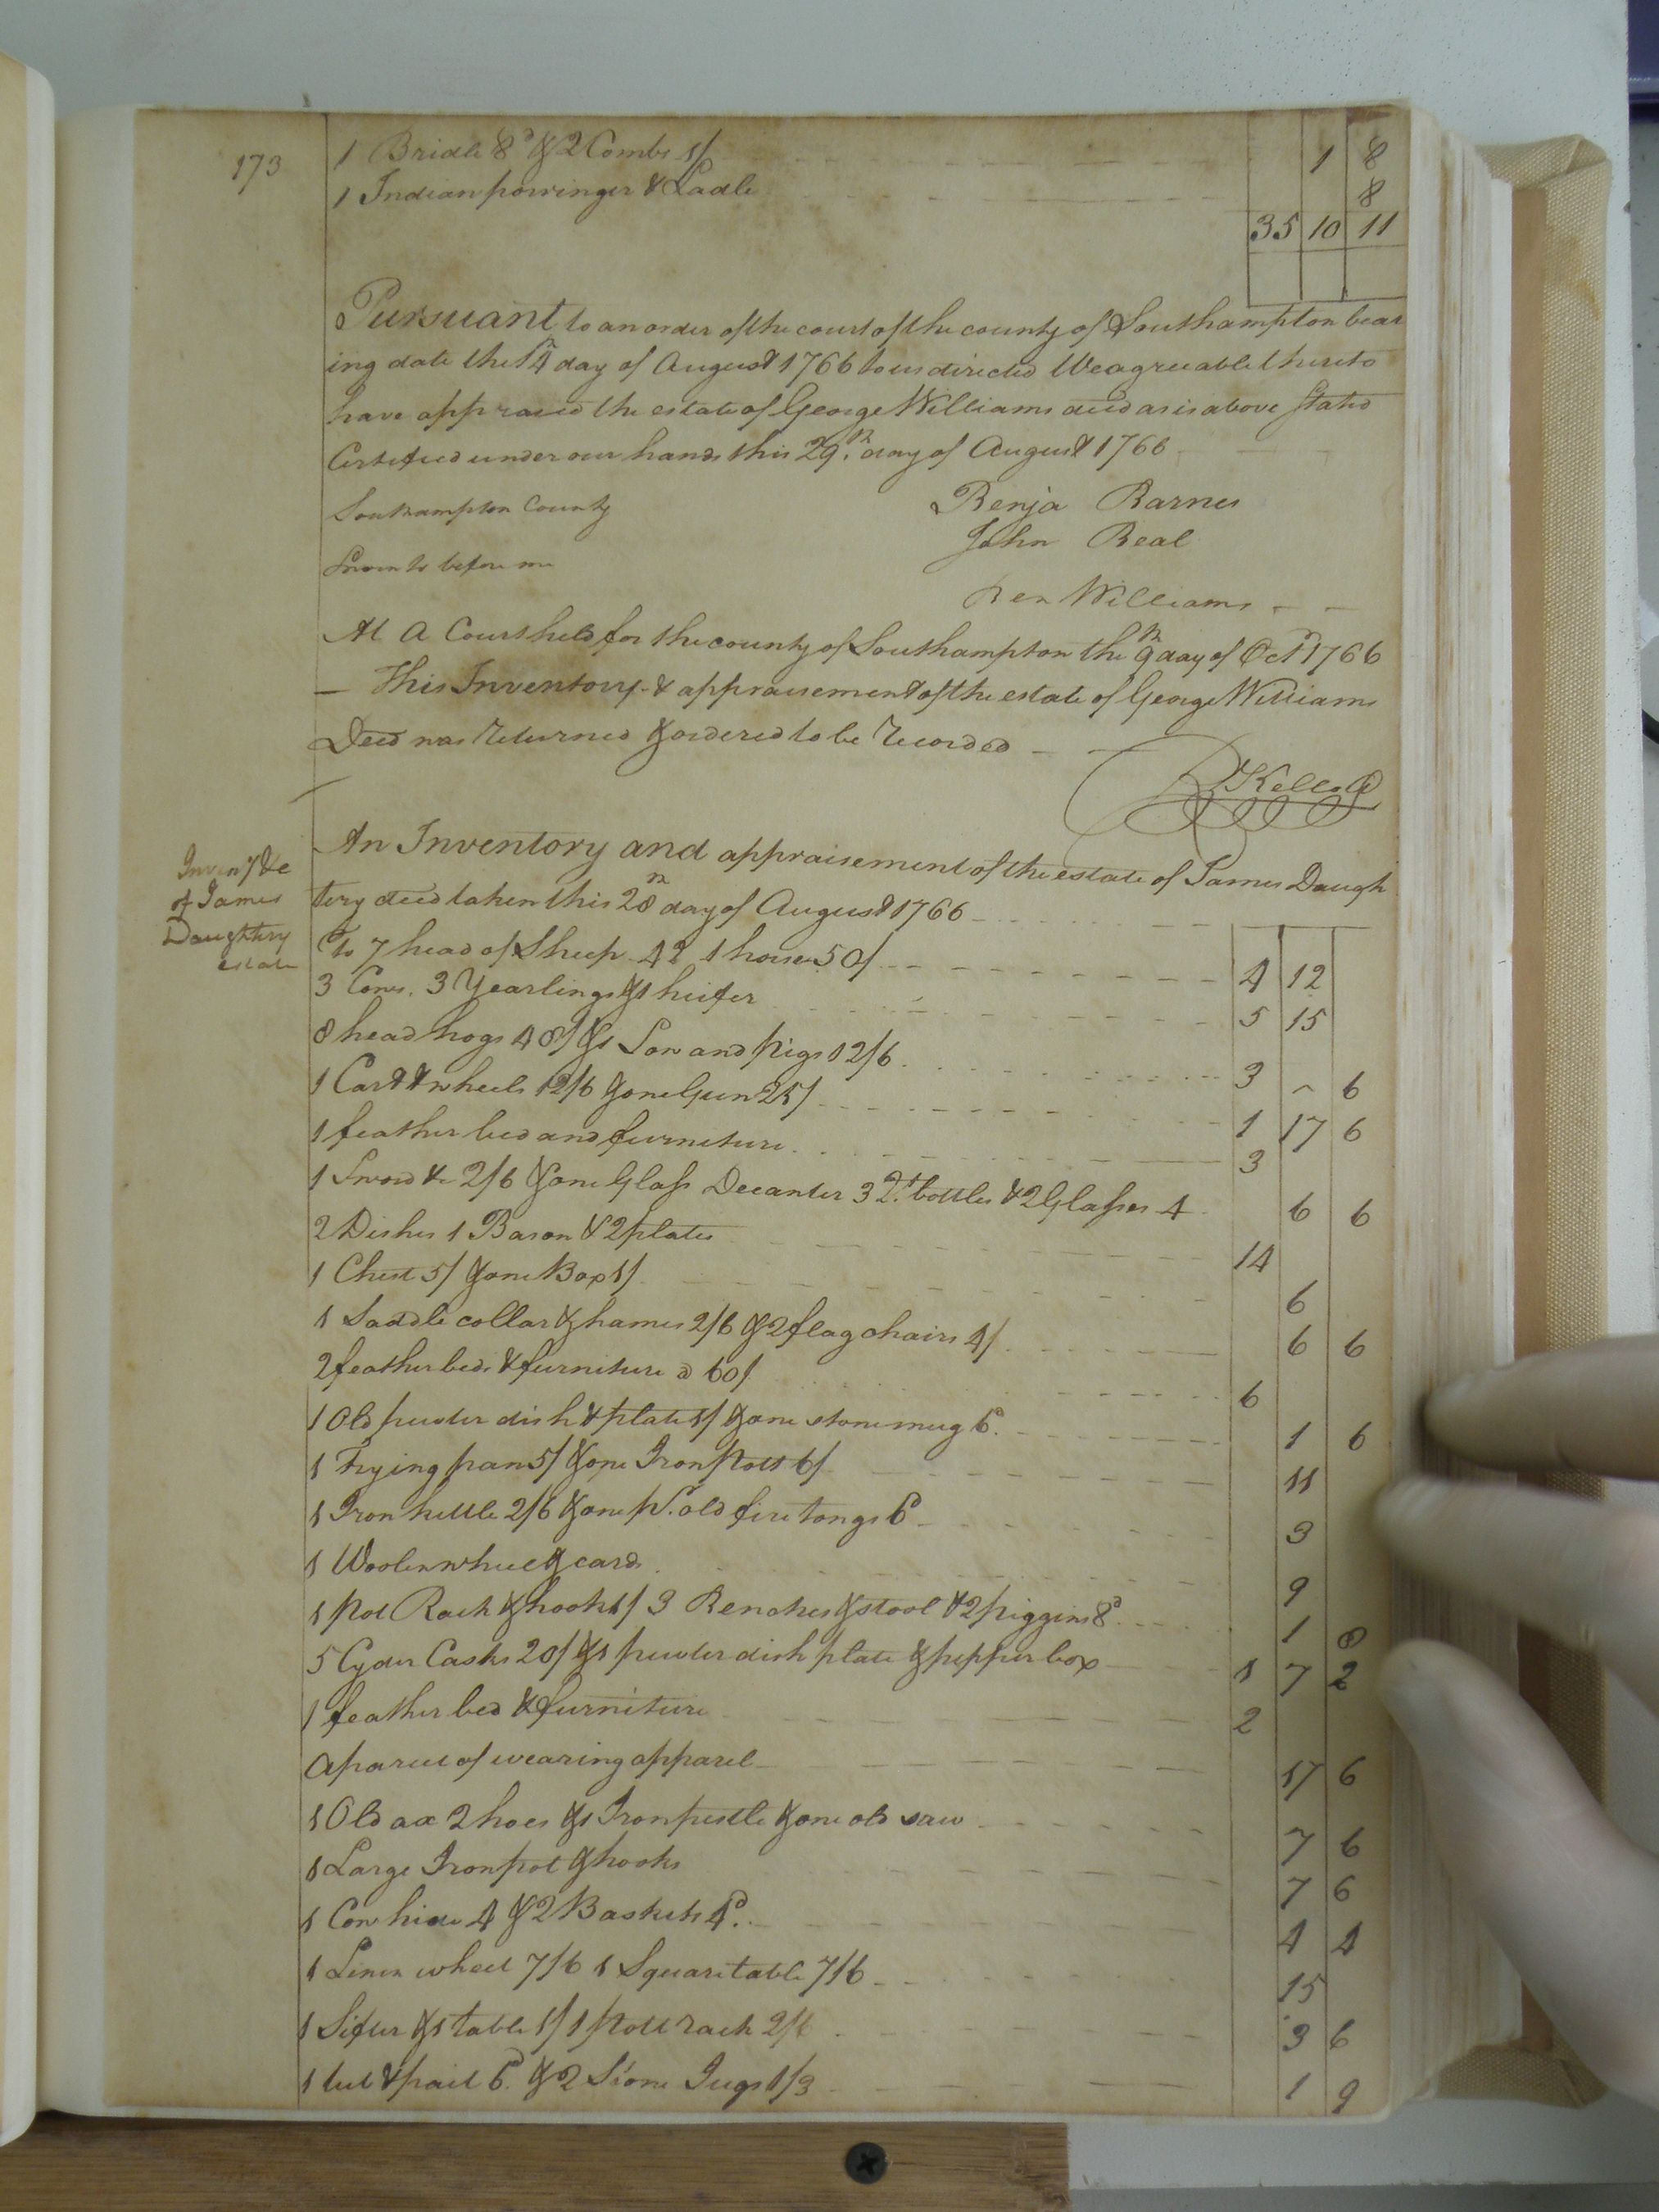 173
1 Bridle 8d & 2 Combs 1/ 1 8
1 Indian porringer & Ladle 8
35 10 11
Pursuant to an order of the court of the county of Southampton bear
ing date the 14 day of August 1766 to us directed We agreeable thereto
have appraised the estate of George Williams decd as is above stated
Certified under our hands this 29th day of August 1766
Southampton County Benja Barnes
John Beal
Sworn to before me
Ben Williams
At a Court held for the county of Southampton the 9th day of Octr 1766
This Inventory & appraisement of the estate of George Williams
Decd was Returned & ordered to be Recorded
R Kello
Inven'y &c
of James
Daughtery
estate
An Inventory and appraisement of the estate of James Daugh
tery decd taken this 28th day of August 1766
To 7 head of Sheep 42 1 horse 50/ 4 12
3 Cows, 3 Yearlings & 1 heifer 5 15
8 head hogs 48/ & 1 Sow and pigs 12/6 3 ~ 6
1 Cart & wheels 12/6 & one Gun 25/ 1 17 6
1 feather bed and furniture 3
1 Sword &c 2/6 & one Glass Decanter 3 Qt bottles & 2 Glasses 4 6 6
2 Dishes 1 Bason & 2 plates 14
1 Chest 5/ & one Box 1/ 6
1 Saddle collar & hames 2/6 & 2 flag chairs 4/ 6 6
2 feather beds & furniture @ 60/ 6
1 Old pewter dish & plate 1/ & one stone mug 6d. 1 6
1 Frying pan 5/ & one Iron Pott 6/ 11
1 Iron kettle 2/6 & one pr. old fire tongs 6d 3
1 Woolen wheel & cards 9
1 Pot Rack & hooks 1/ 3 Benches & stool & 2 piggins 8d 1 8
5 Cyder Casks 20/ & 1 pewter dish plate & pepper box 1 7 2
1 feather bed & furniture 2
A parcel of wearing apparel 17 6
1 Old ax 2 hoes & 1 Iron pestle & one old saw 7 6
1 Large Iron pot & hooks 7 6
1 Cow hide 4 & 2 Baskets 4d. 4 4
1 Linen wheel 7/6 1 Square table 7/6 15
1 Sifter & 1 table 1/ 1 Pott rack 2/6 3 6
1 tub & pail 6d. & 2 Stone Jugs 1/3 1 9